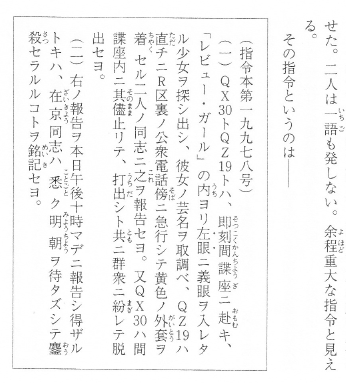 せた。二人は一語も発しない。余程重大な指令と見え
る。
その指令というのは――
（指令本第一九九七八号）
（一）QX30トQZ19トハ、即刻間諜座ニ赴キ、
「レビュー・ガール」の内ヨリ左眼ニ義眼ヲ入レタ
ル少女ヲ探シ出シ、彼女ノ芸名ヲ取調ベ、QZ19ハ
直チニR区裏ノ公衆電話傍ニ急行シテ黄色ノ外套ヲ
着セル二人ノ同志ニ之ヲ報告セヨ。又QX30ハ間
諜座内ニ其儘止リテ、打出シト共ニ群衆ニ紛レテ脱
出セヨ。
（二）右ノ報告ヲ本日午後十時マデニ報告シ得ザル
トキハ、在京同志ハ悉ク明朝ヲ待タズシテ鏖
殺セラルルコトヲ銘記セヨ。